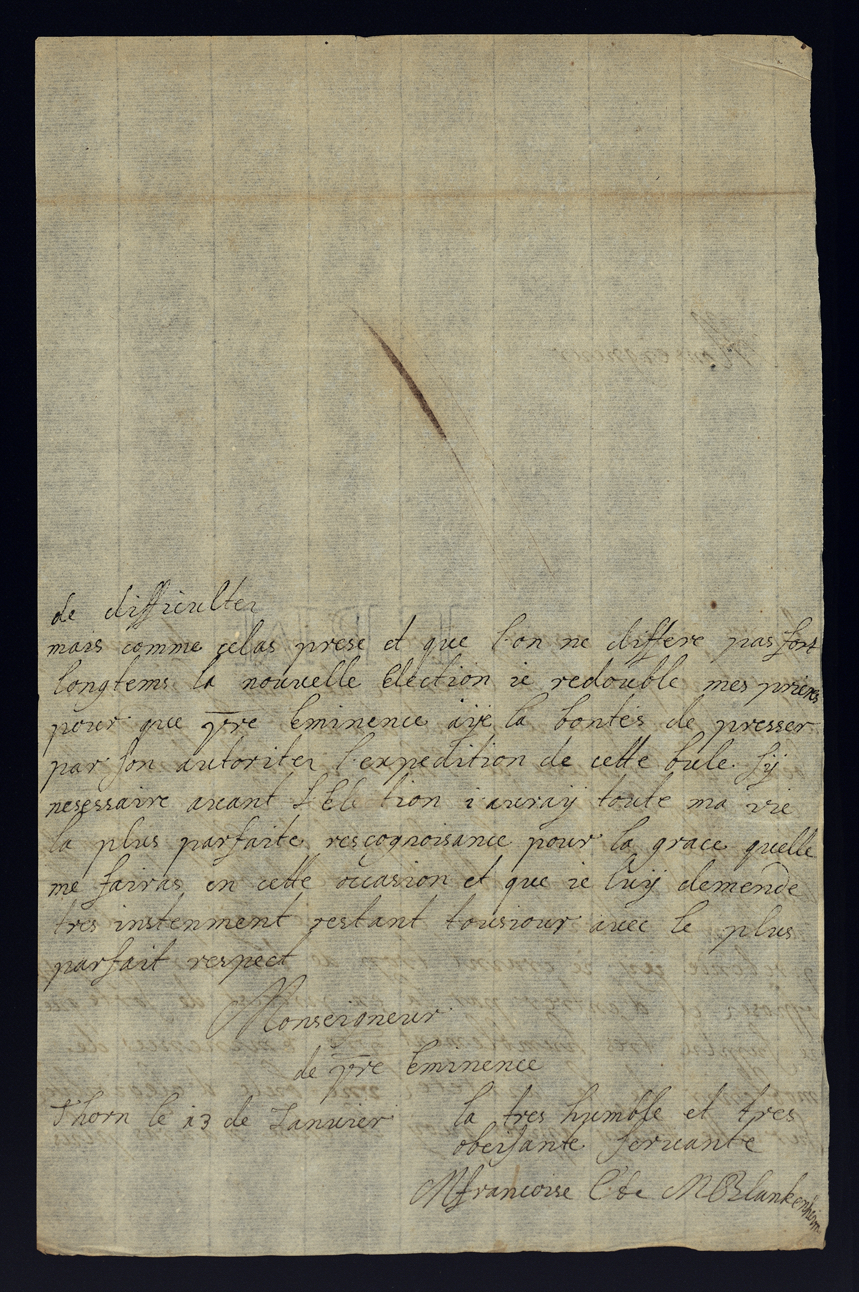 de difficultez
mais comme celas prese et que l'on ne differe pas fort
longtems la nouvelle Election ie redouble mes prieres
pour que vre Eminence aije la bontés de presser
par son autoritez l'expedition de cette bule sij
nesessaire avant l'Election i'auraij toute ma vie
la plus parfaite rescognoisance pour la grace quelle
me fairas en cette occasion et que ie luij demende
tres instenment restant tousiour avec le plus
parfait respect
Monseigneur
de vre Eminence
Thorn le 13 de Ianvier
la tres humble et tres
obeisante servante
MFrancoise C de MBlankenheim
Monseigneur